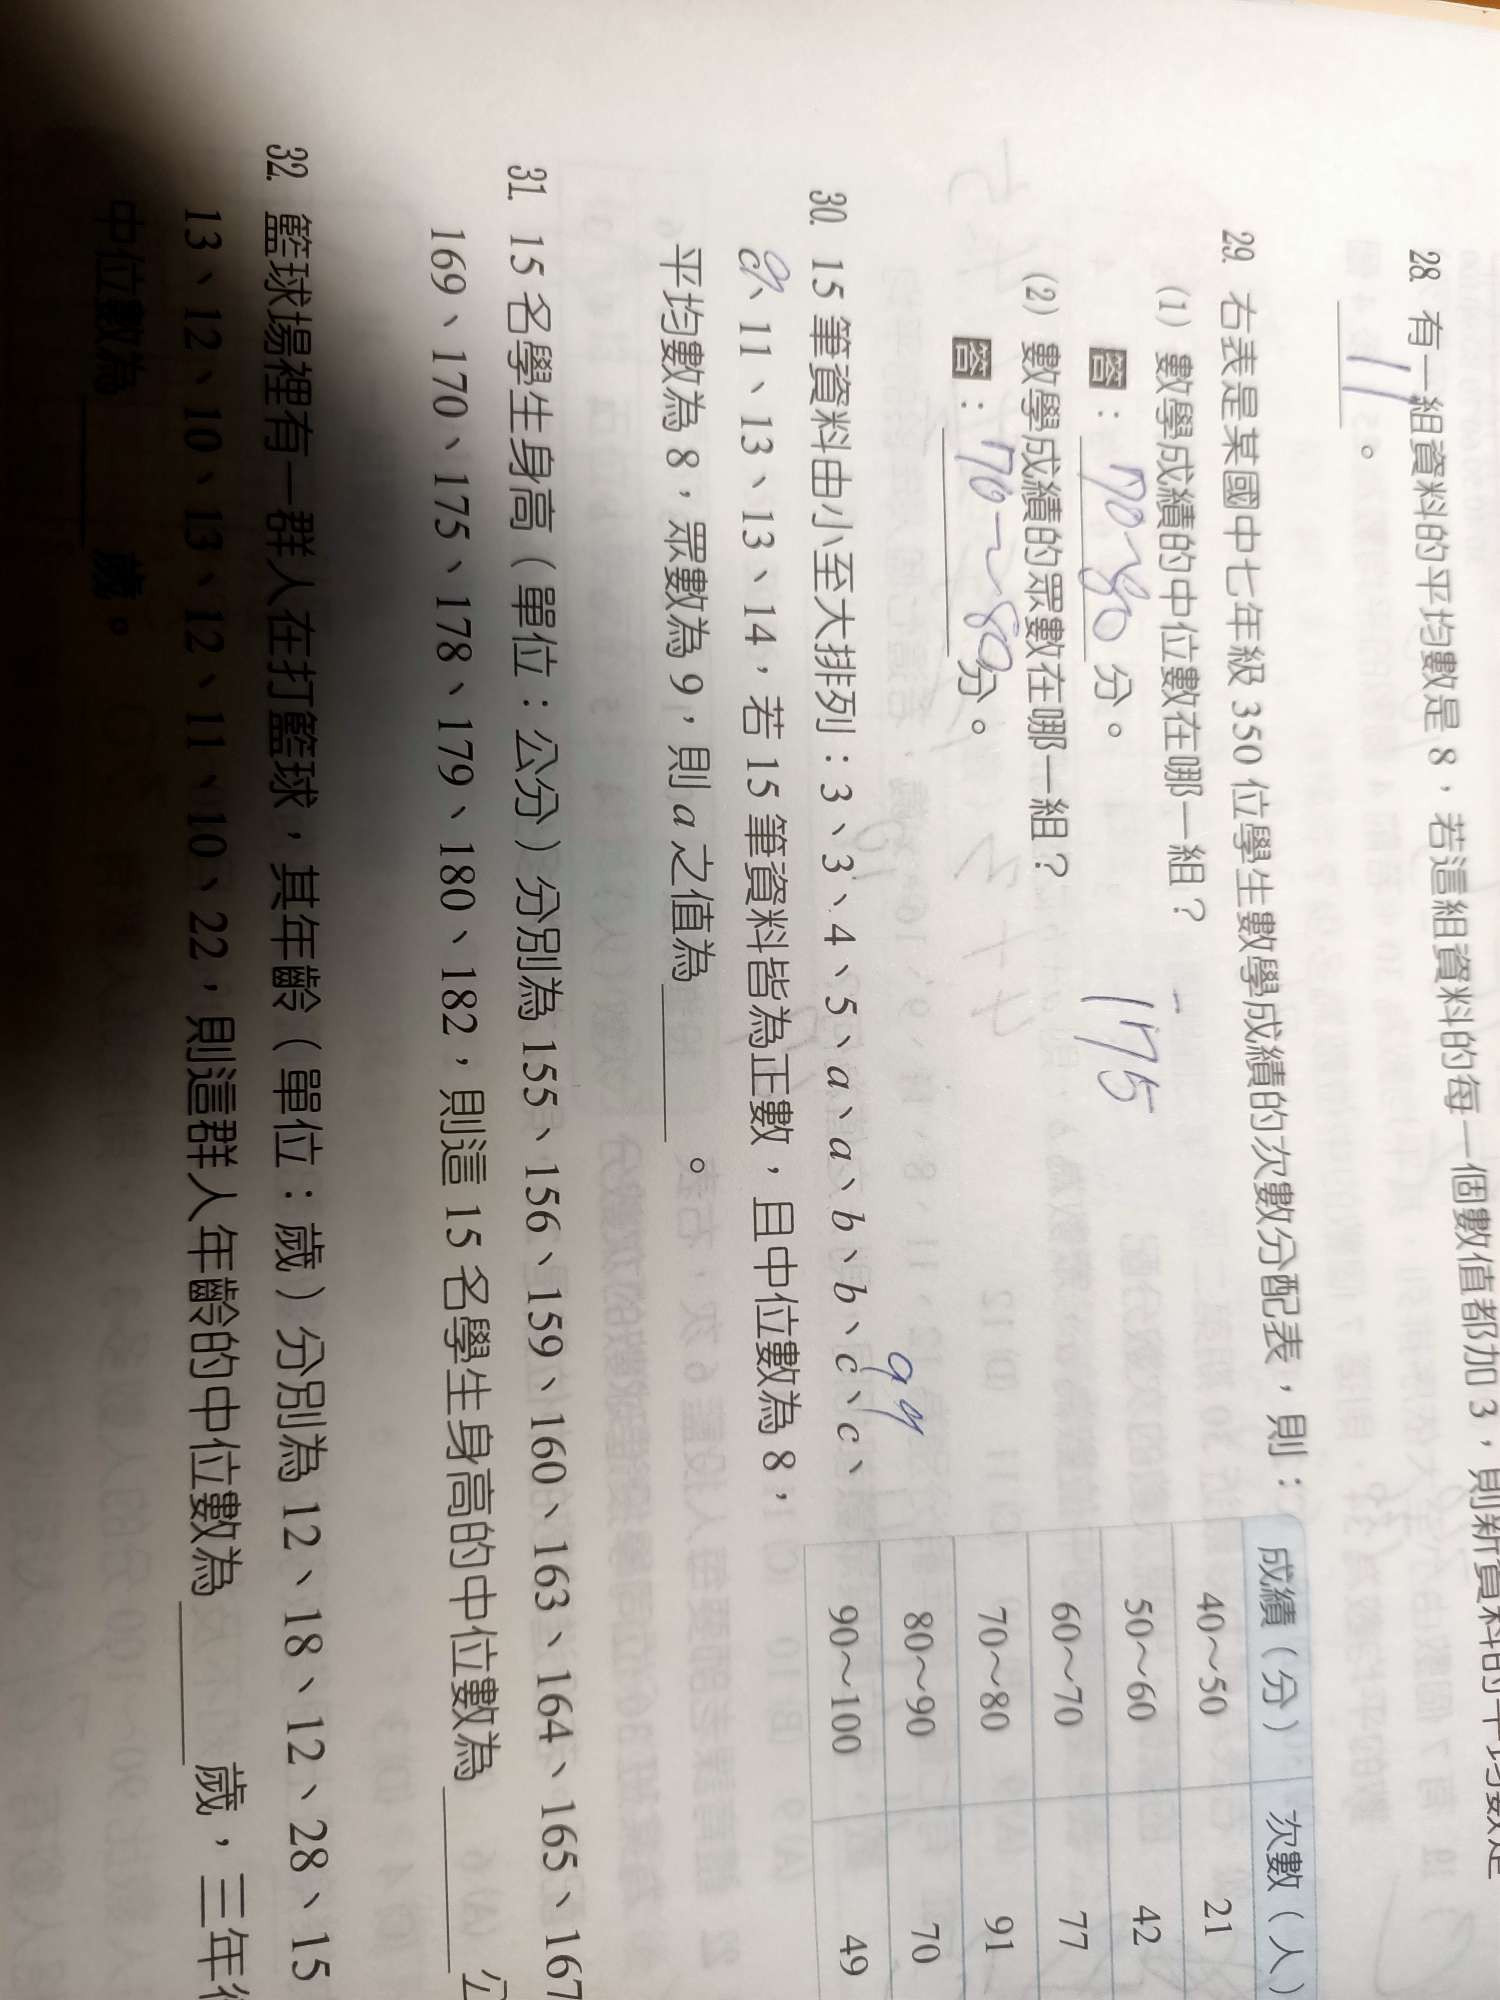 28. 有一組資料的平均數是 8，若這組資料的每一個數值都加 3，則新資料的平均數是
11 。
29. 右表是某國中七年級 350 位學生數學成績的次數分配表，則：
(1) 數學成績的中位數在哪一組？
答：70~80 分。
175
(2) 數學成績的眾數在哪一組？
答：70~80 分。
成績（分） 次數（人）
40～50 21
50～60 42
60～70 77
70～80 91
80～90 70
90～100 49
30. 15 筆資料由小至大排列：3、3、4、5、a、a、b、b、c、c、
c、11、13、13、14，若 15 筆資料皆為正數，且中位數為 8，
平均數為 8，眾數為 9，則 a 之值為 。
31. 15 名學生身高（單位：公分）分別為 155、156、159、160、163、164、165、167
169、170、175、178、179、180、182，則這 15 名學生身高的中位數為 公
32. 籃球場裡有一群人在打籃球，其年齡（單位：歲）分別為 12、18、12、28、15
13、12、10、13、12、11、10、22，則這群人年齡的中位數為 歲，三年後
中位數為 歲。